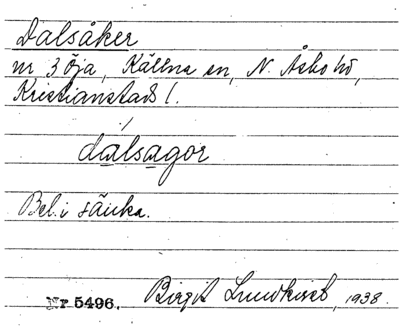 Dalsåker
nr 3 Öja, Källna sn, N. Åsbo hd,
Kristianstads l.
dalsagor
Bel. i sänka.
Nr 5496. Birgit Lundkvist, 1938.